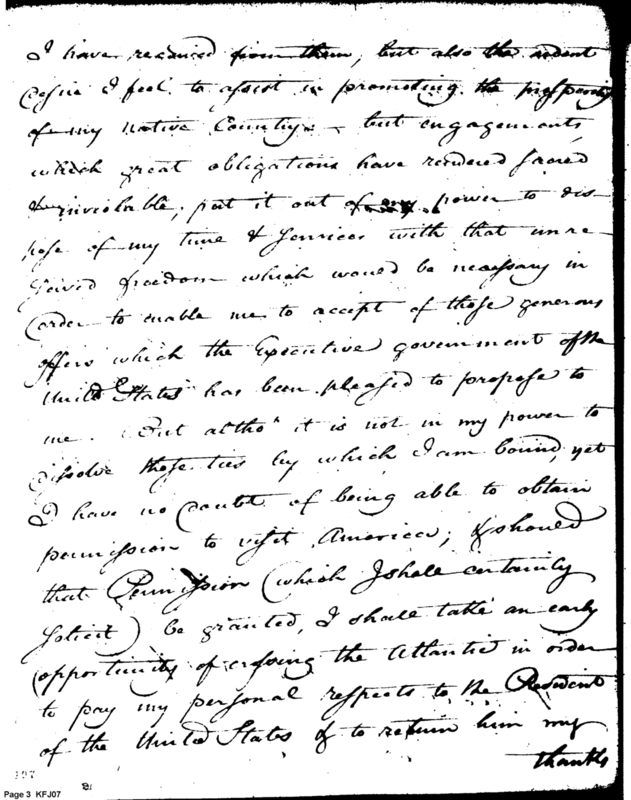 I have received from them, but also the ardent
desire I feel to assist in promoting the prosperity
of my native Country; – but engagements,
which great obligations have rendered sacred
& inviolable, put it out of my power to dis-
pose of my time & Services with that unre-
served freedom which would be necessary in
order to enable me to accept of those generous
offers which the Executive government of the
United States has been pleased to propose to
me. But altho' it is not in my power to
dissolve those ties by which I am bound, yet
I have no doubt of being able to obtain
permission to visit America; & should
that Permission (which I shall certainly
solicit) be granted, I shall take an early
opportunity of crossing the Atlantic in order
to pay my personal respects to the President
of the United States & to return him my
thanks
107
Page 3 KFJ07